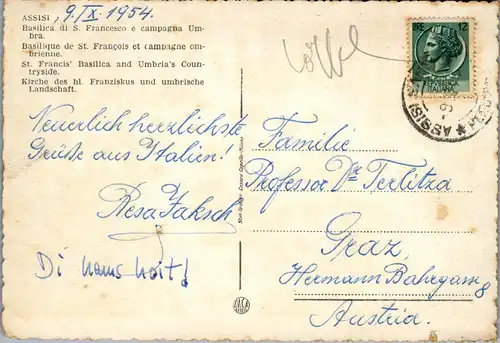 ASSISI , 9./X. 1954.
Basilica di S. Francesco e campagna Um-
bra.
Basilique de St. François et campagne om-
brienne.
St. Francis' Basilica and Umbria's Coun-
tryside.
Kirche des hl. Franziskus und umbrische
Landschaft.
Neuerlich herzlichste
Grüße aus Italien!
Resa Jaksch
Di hams
L. 12
REPVBBLICA
ITALIANA
ASSISI
Familie
Professor Dr Terlitza
Graz,
Hermann Bahrgasse 8
Austria.